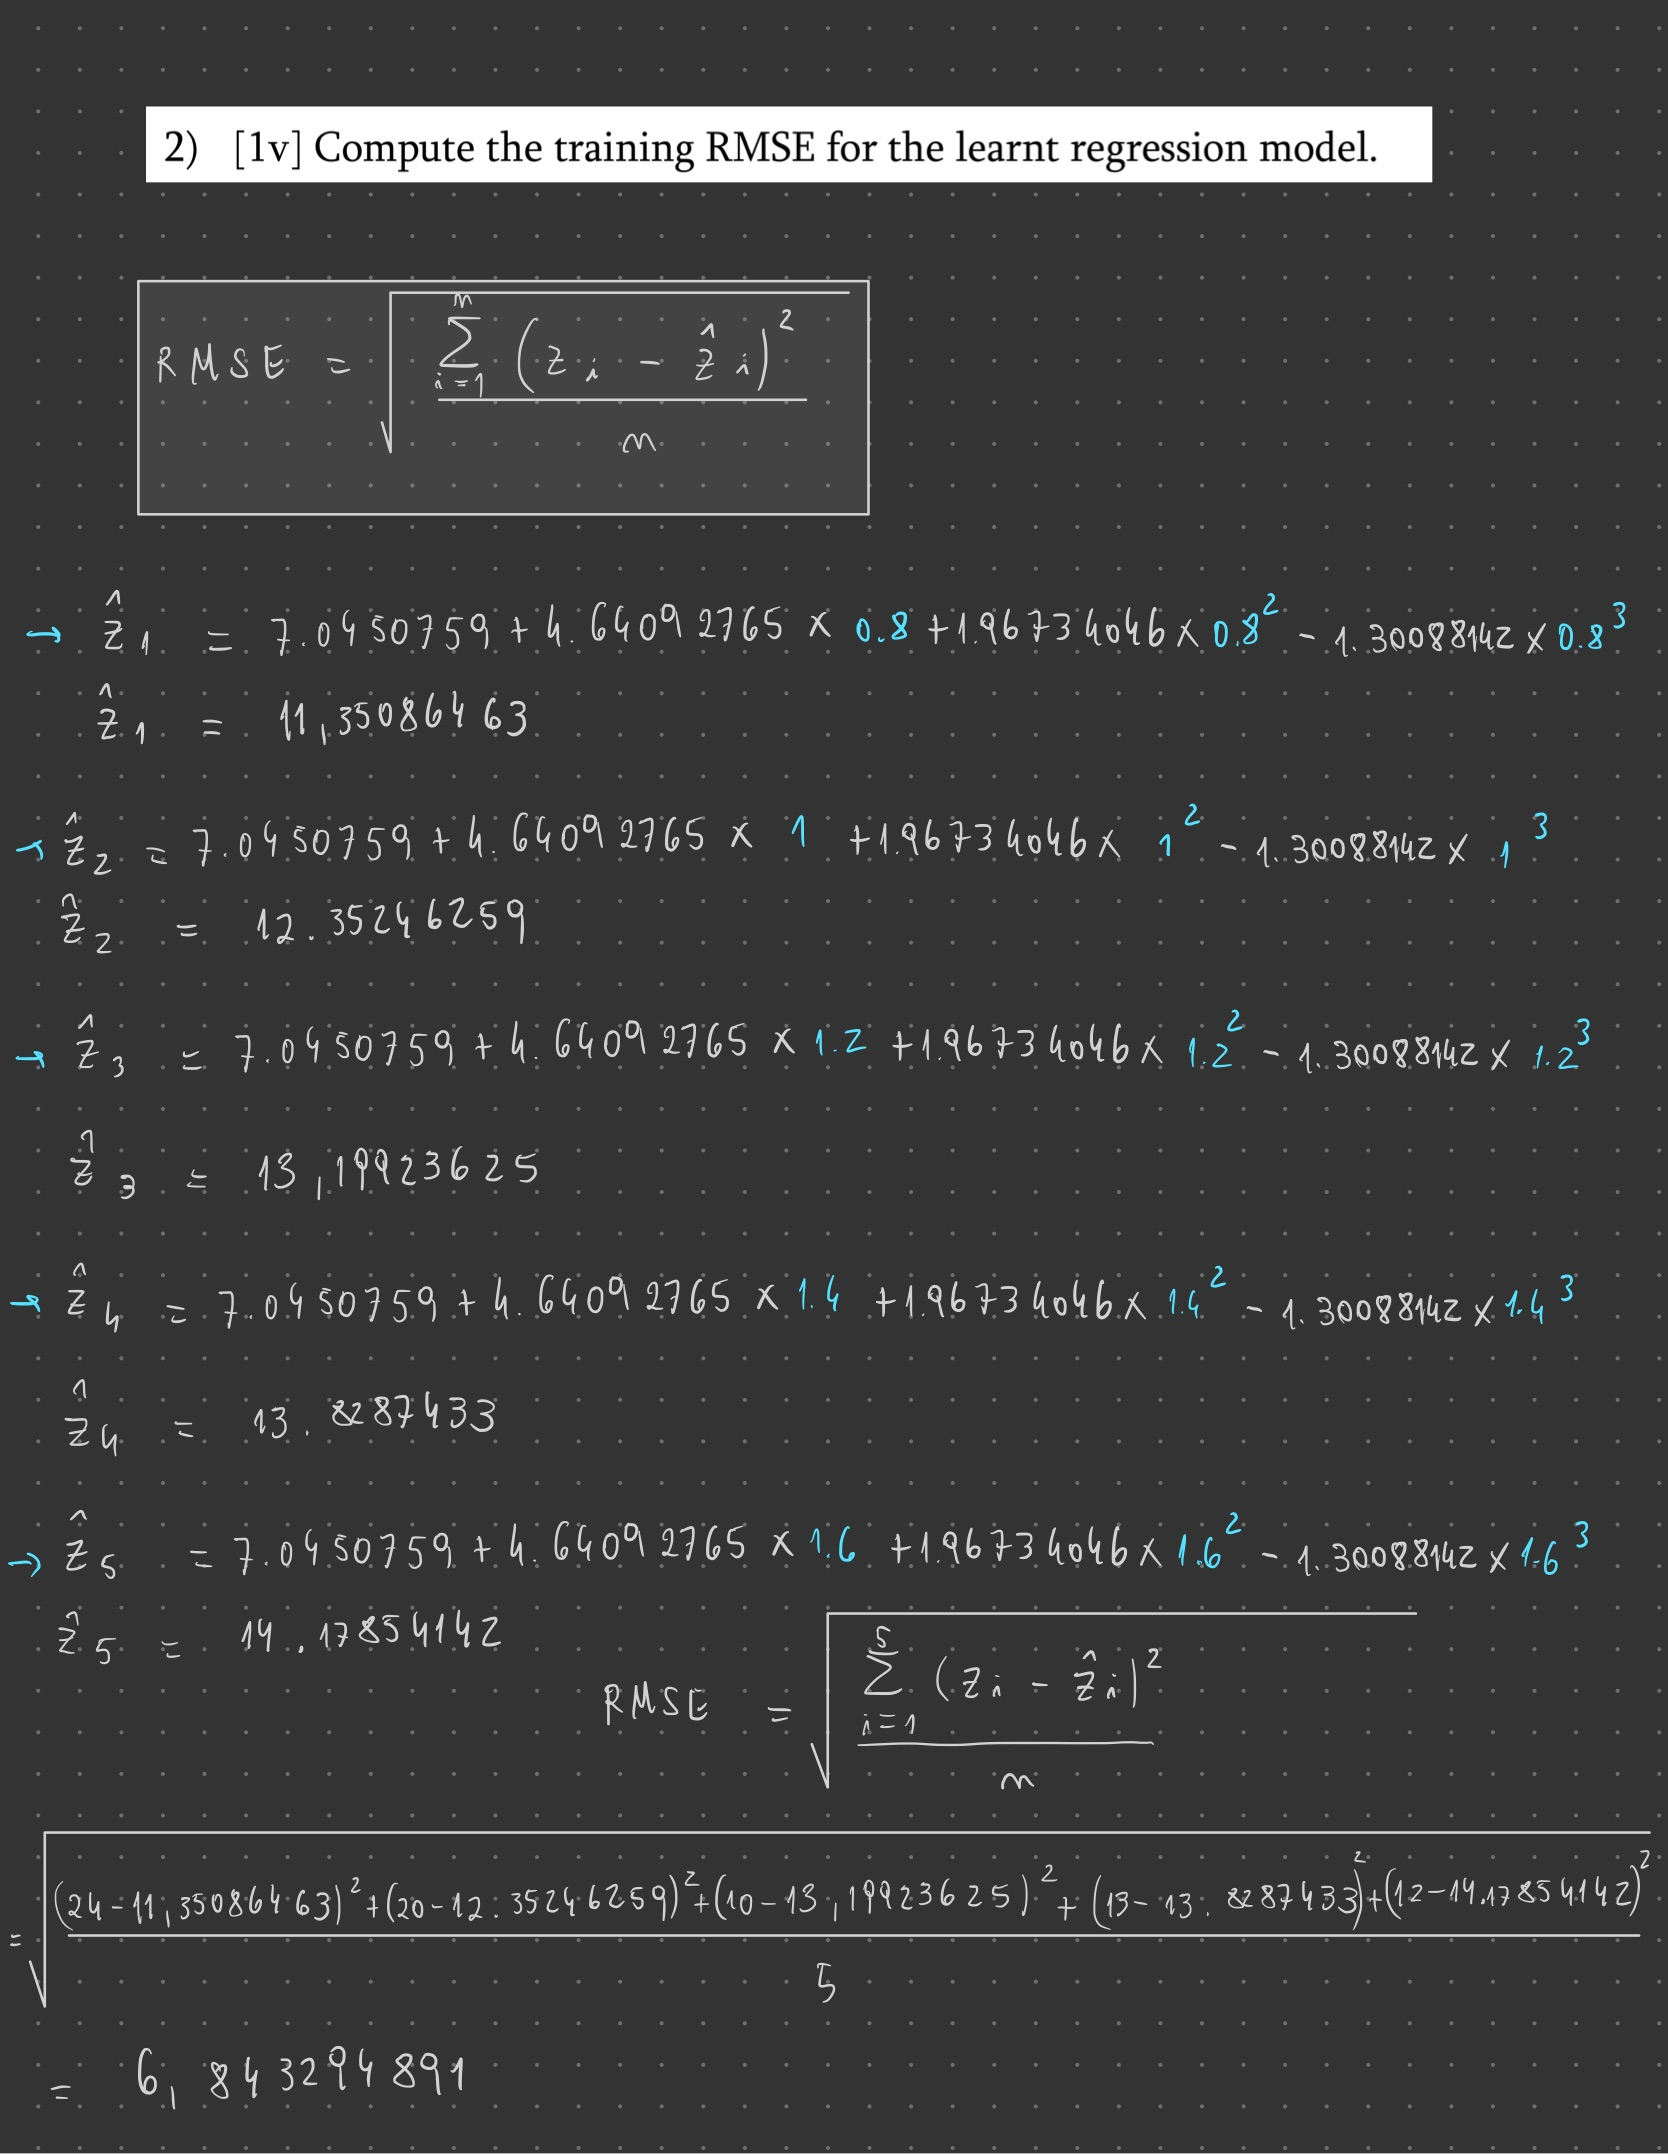 2) [1v] Compute the training RMSE for the learnt regression model.
RMSE = √( Σ_{i=1}^{n} (z_i - ẑ_i)² / n )
→ ẑ_1 = 7.0450759 + 4.64092765 × 0.8 + 1.96734046 × 0.8² - 1.30088142 × 0.8³
ẑ_1 = 11,35086463
→ ẑ_2 = 7.0450759 + 4.64092765 × 1 + 1.96734046 × 1² - 1.30088142 × 1³
ẑ_2 = 12.35246259
→ ẑ_3 = 7.0450759 + 4.64092765 × 1.2 + 1.96734046 × 1.2² - 1.30088142 × 1.2³
ẑ_3 = 13,19923625
→ ẑ_4 = 7.0450759 + 4.64092765 × 1.4 + 1.96734046 × 1.4² - 1.30088142 × 1.4³
ẑ_4 = 13.8287433
→ ẑ_5 = 7.0450759 + 4.64092765 × 1.6 + 1.96734046 × 1.6² - 1.30088142 × 1.6³
ẑ_5 = 14.17854142
RMSE = √( Σ_{i=1}^{5} (z_i - ẑ_i)² / n )
= √( ((24-11,35086463)² + (20-12.35246259)² + (10-13,19923625)² + (13-13.8287433)² + (12-14.17854142)²) / 5 )
= 6,843294891